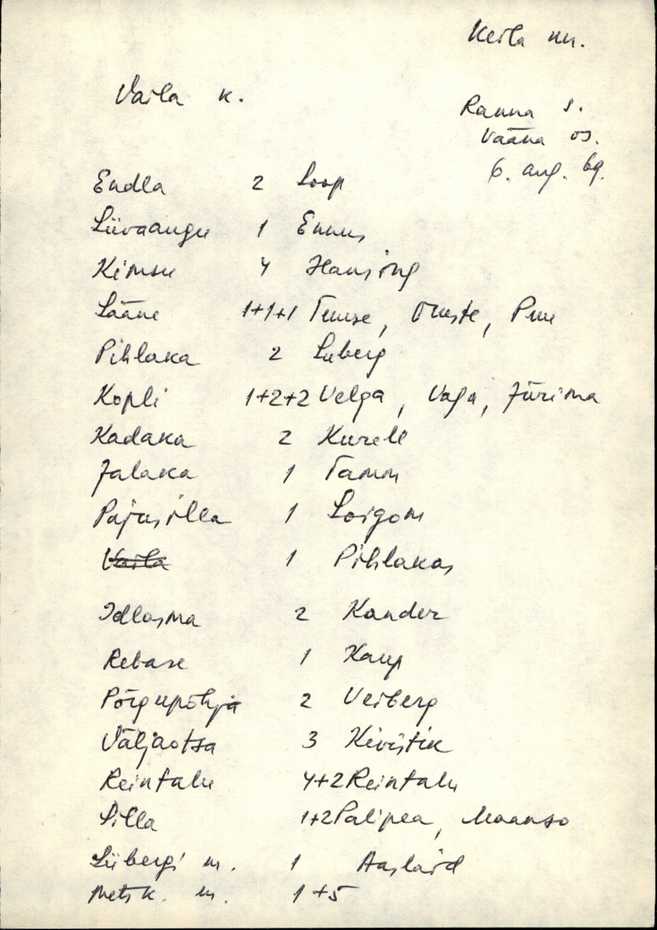 Keila mn.
Vaila k.
Ranna s.
Vääna os.
6. aug. 69.
Endla 2 Loop
Liivaaugu 1 Ennus
Kimsu 4 Hansing
Lääne 1+1+1 Tuuse, Omste, Puu
Pihlaka 2 Liiberg
Kopli 1+2+2 Velga, Vaga, Jürima
Kadaka 2 Kurell
Jalaka 1 Tamm
Pajusilla 1 Loigom
Vaila 1 Pihlakas
Idlasma 2 Kander
Rebase 1 Kaup
Põrgupõhja 2 Veiberg
Väljaotsa 3 Kivistik
Reintalu 4+2 Reintalu
Silla 1+2 Palipea, Maanso
Liibergi m. 1 Aaslaid
Metsk. m. 1+5